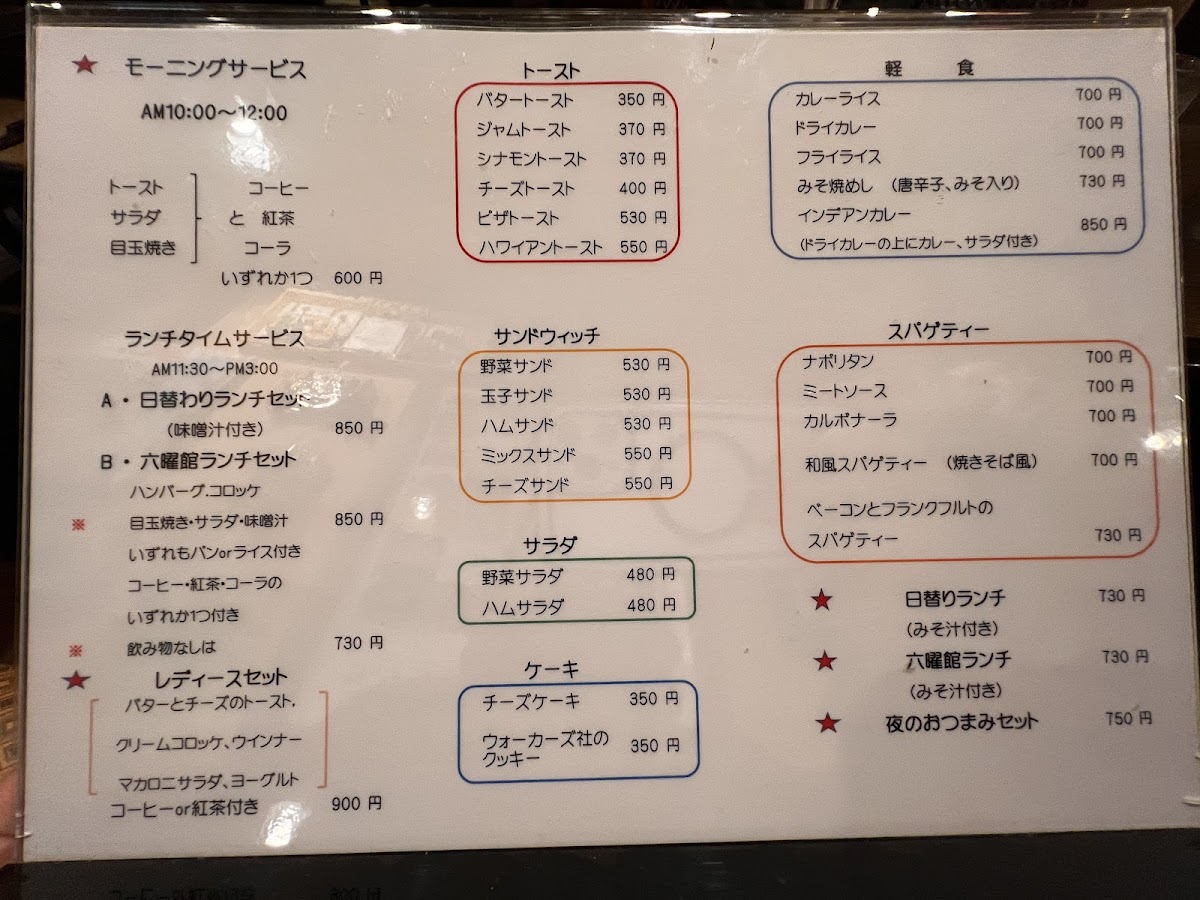 ★ モーニングサービス
AM10:00～12:00
トースト コーヒー
サラダ と 紅茶
目玉焼き コーラ
いずれか1つ 600 円
ランチタイムサービス
AM11:30～PM3:00
A・日替わりランチセット
(味噌汁付き) 850 円
B・六曜館ランチセット
ハンバーグ.コロッケ
※ 目玉焼き・サラダ・味噌汁 850 円
いずれもパンorライス付き
コーヒー・紅茶・コーラの
いずれか1つ付き
※ 飲み物なしは 730 円
★ レディースセット
バターとチーズのトースト.
クリームコロッケ、ウインナー
マカロニサラダ、ヨーグルト
コーヒーor紅茶付き 900 円
トースト
バタートースト 350 円
ジャムトースト 370 円
シナモントースト 370 円
チーズトースト 400 円
ピザトースト 530 円
ハワイアントースト 550 円
サンドウィッチ
野菜サンド 530 円
玉子サンド 530 円
ハムサンド 530 円
ミックスサンド 550 円
チーズサンド 550 円
サラダ
野菜サラダ 480 円
ハムサラダ 480 円
ケーキ
チーズケーキ 350 円
ウォーカーズ社の
クッキー 350 円
軽 食
カレーライス 700 円
ドライカレー 700 円
フライライス 700 円
みそ焼めし (唐辛子、みそ入り) 730 円
インデアンカレー 850 円
(ドライカレーの上にカレー、サラダ付き)
スパゲティー
ナポリタン 700 円
ミートソース 700 円
カルボナーラ 700 円
和風スパゲティー (焼きそば風) 700 円
ベーコンとフランクフルトの
スパゲティー 730 円
★ 日替りランチ 730 円
(みそ汁付き)
★ 六曜館ランチ 730 円
(みそ汁付き)
★ 夜のおつまみセット 750 円